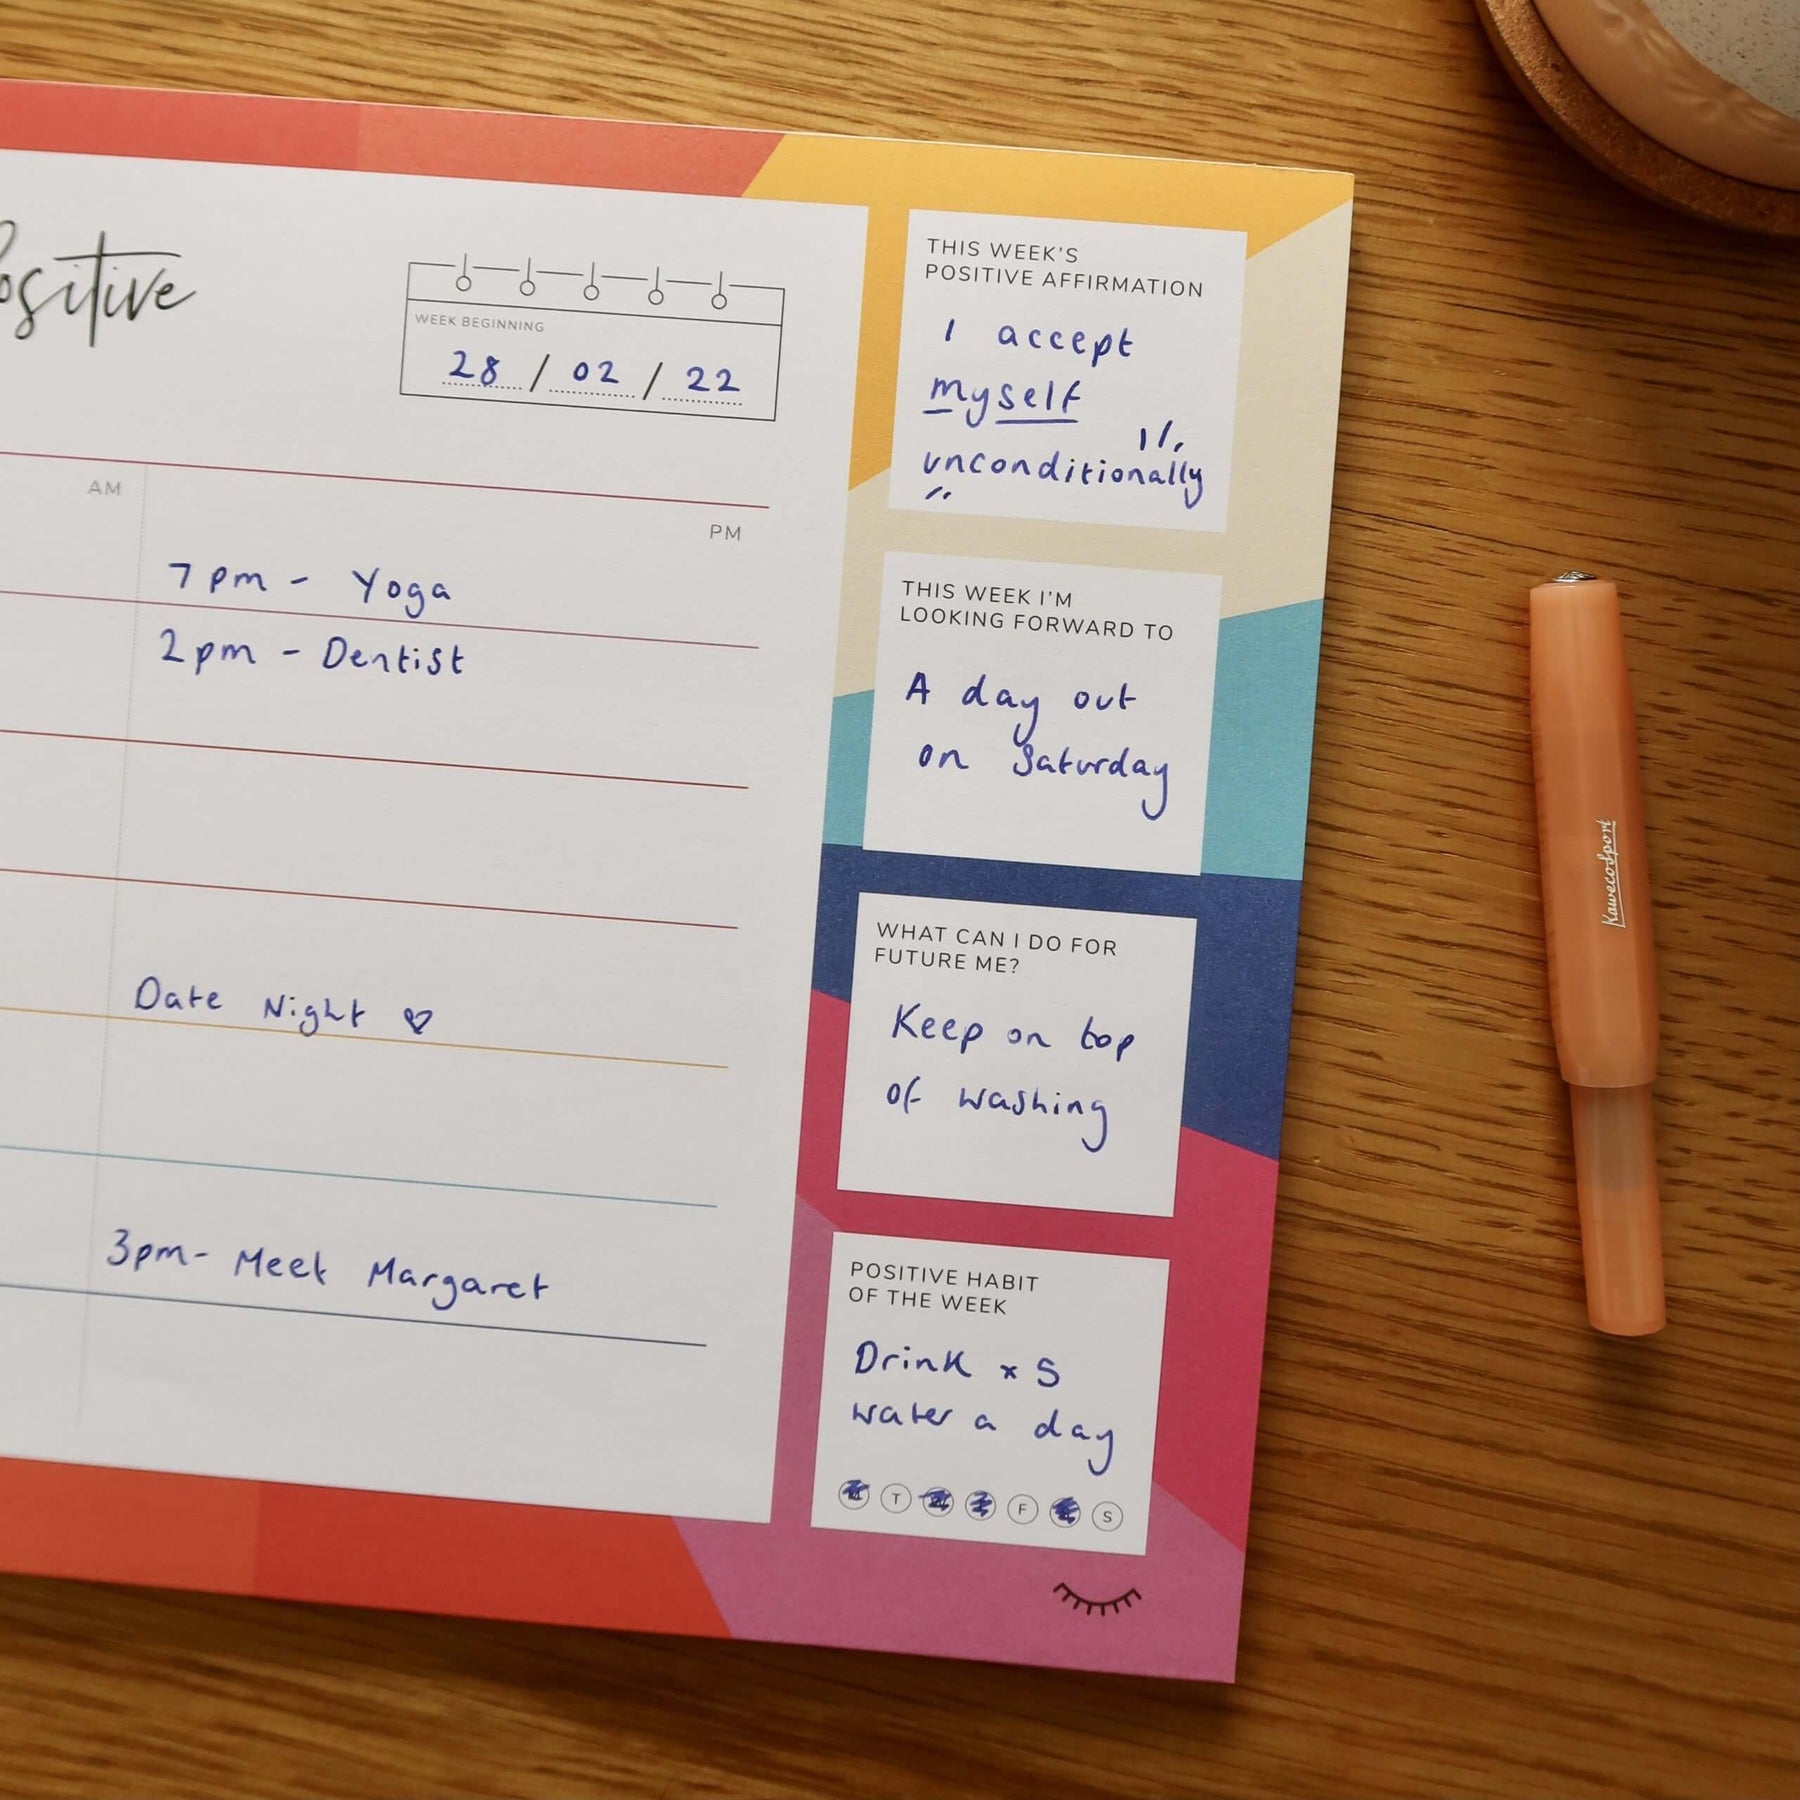 ositive
WEEK BEGINNING
28 / 02 / 22
AM
PM
7pm - Yoga
2pm - Dentist
Date Night ♡
3pm- Meet Margaret
THIS WEEK'S
POSITIVE AFFIRMATION
I accept
myself
unconditionally
THIS WEEK I'M
LOOKING FORWARD TO
A day out
on Saturday
WHAT CAN I DO FOR
FUTURE ME?
Keep on top
of washing
POSITIVE HABIT
OF THE WEEK
Drink x 5
water a day
T F S
Kaweco Sport